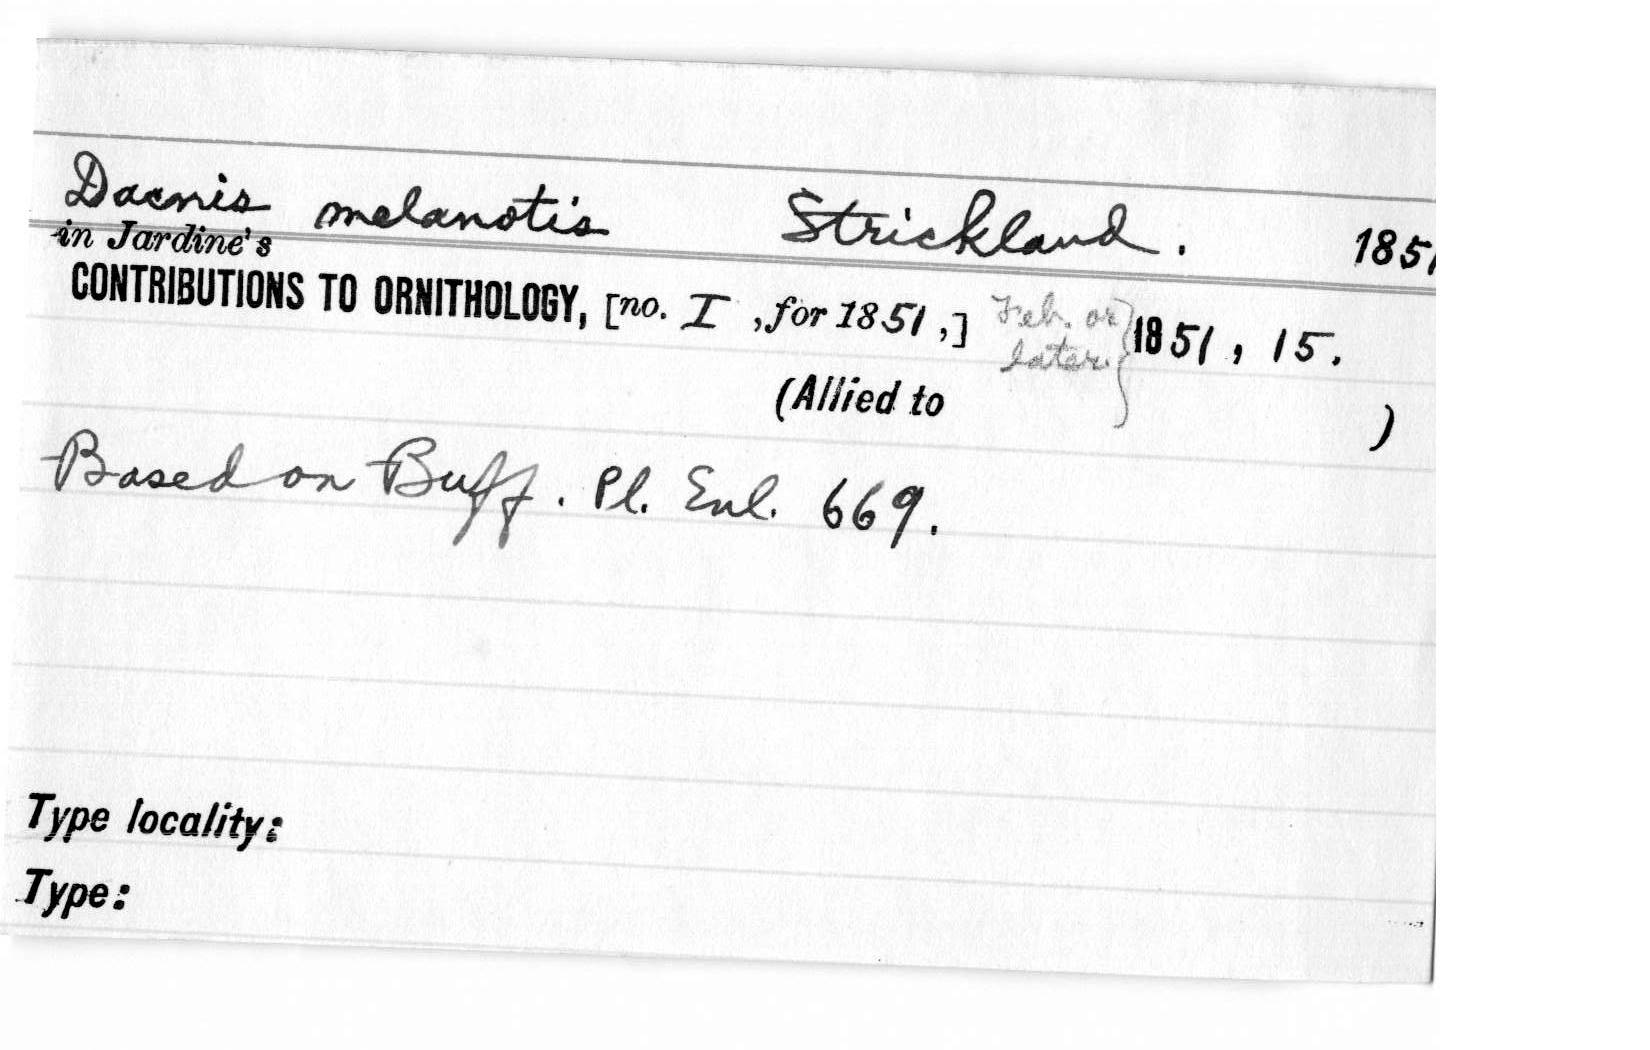 Dacnis melanotis Strickland. 1851
in Jardine's
CONTRIBUTIONS TO ORNITHOLOGY, [no. I , for 1851 ,] Feb. or later } 1851 , 15.
(Allied to )
Based on Buff. Pl. Enl. 669.
Type locality:
Type: